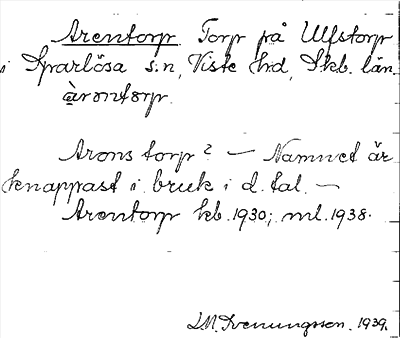 Arentorp Torp på Ulfstorp
i Sparlösa s:n, Viste hd, Skb. län.
àrontorp.
Arons torp? — Namnet är
knappast i bruk i d. tal. —
Arentorp kb. 1930; ml. 1938.
L.M. Svenungsson. 1939.